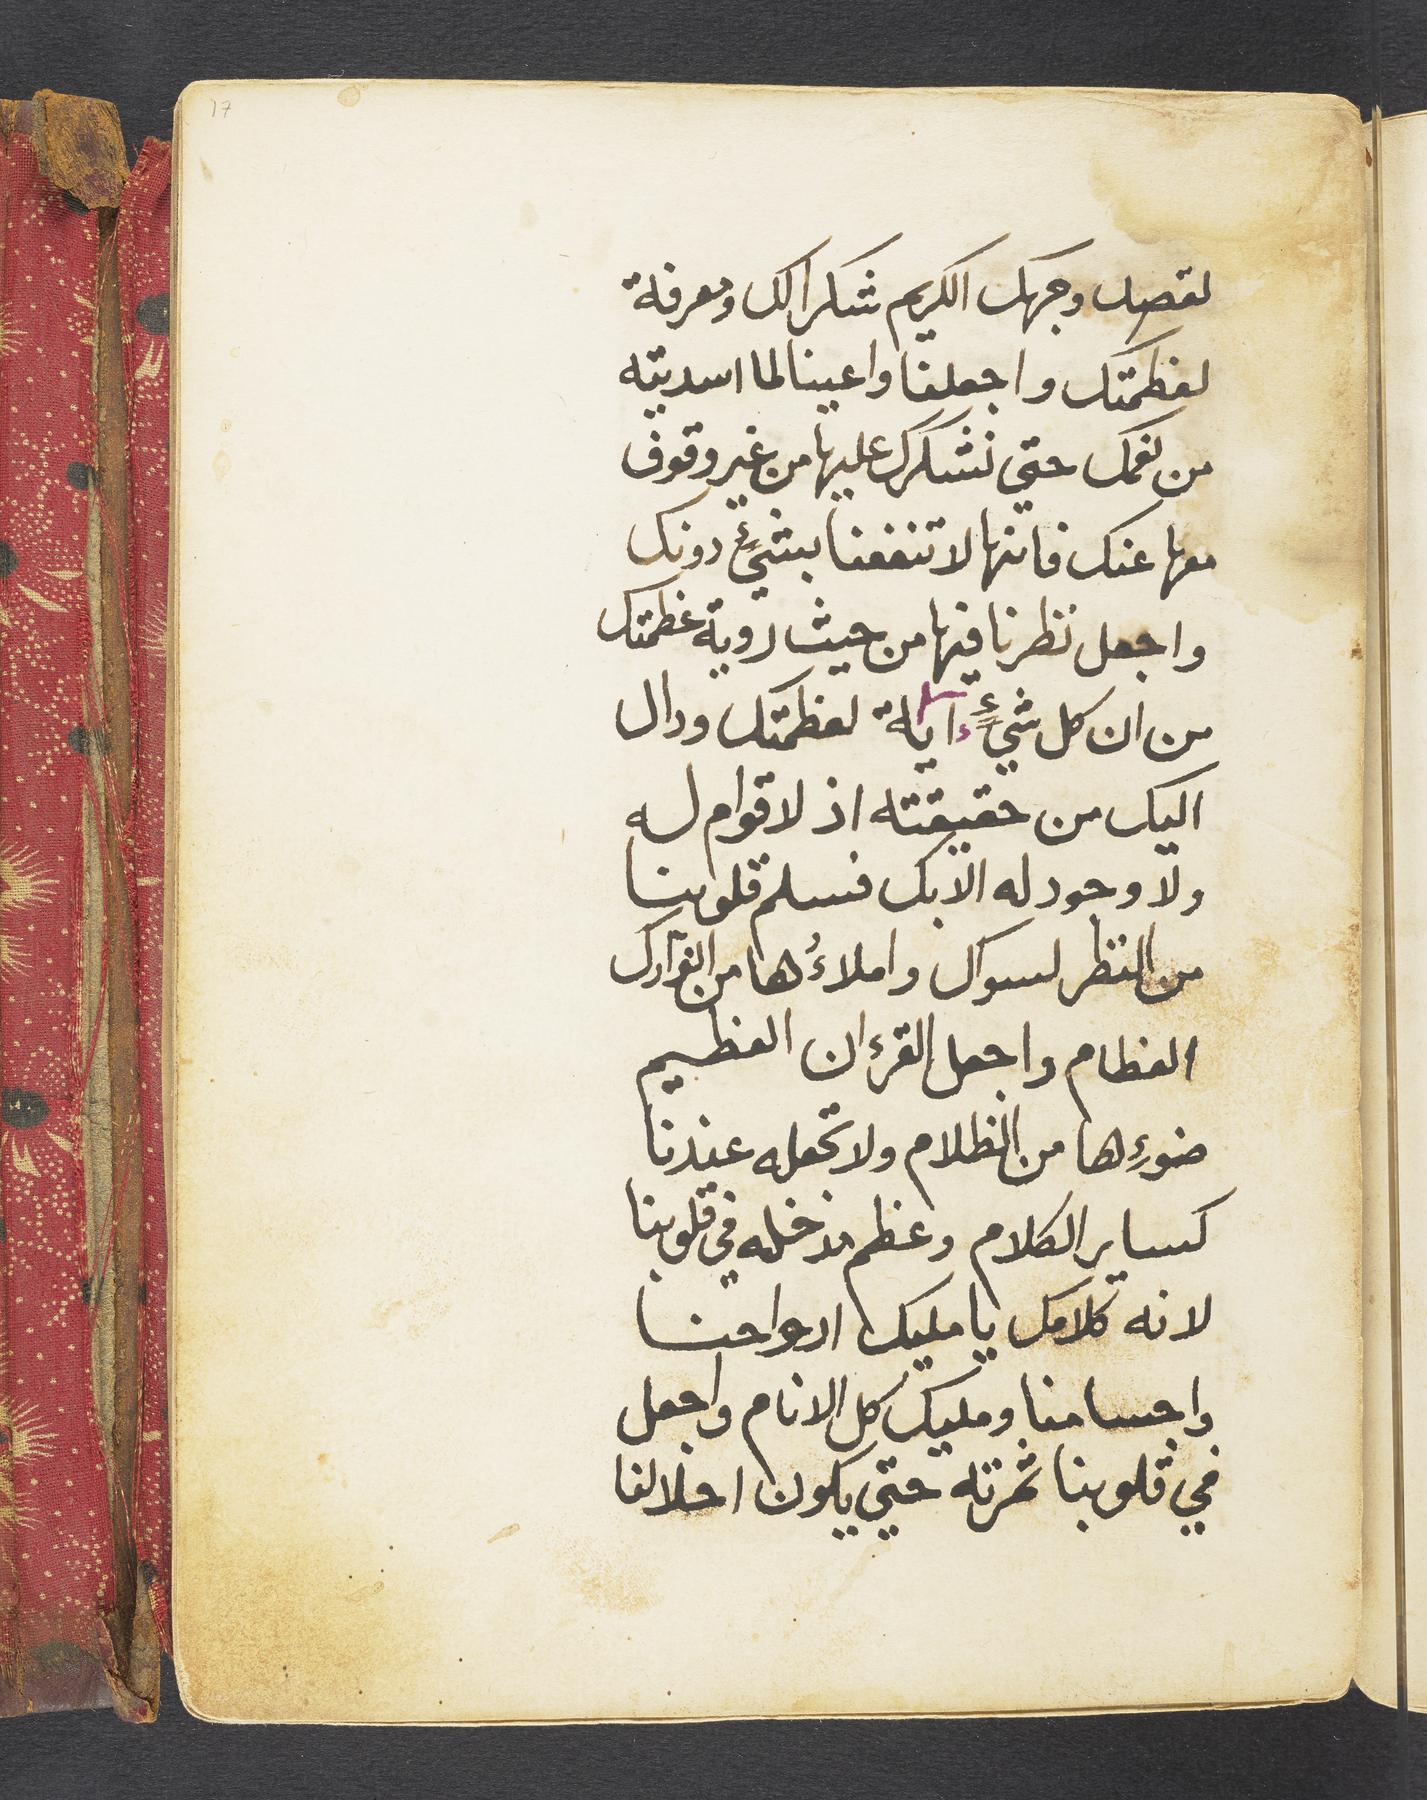 17
لقصد وجهك الكريم شكرا لك ومعرفة
لعظمتك واجعلنا واعيينا لما اسديته
من نعمك حتي نشكرك عليها من غير وقوف
معها عنك فانها لا تنفعنا بشيءٍ دونك
واجعل نظرنا فيها من حيث روية عظمتك
من ان كل شيءٍ ءاية لعظمتك ودال
اليك من حقيقته اذ لا قوام له
ولا وجود له الا بك فسلم قلوبنا
من النظر لسواك واملاءُها من انوارك
العظام واجعل القرءان العظيم
ضوءِها من الظلام ولا تجعله عندنا
كساير الكلام وعظم مدخله في قلوبنا
لانه كلامك يا مليك ارواحنا
واجسامنا ومليك كل الانام واجعل
في قلوبنا ثمرته حتي يكون اجلالنا